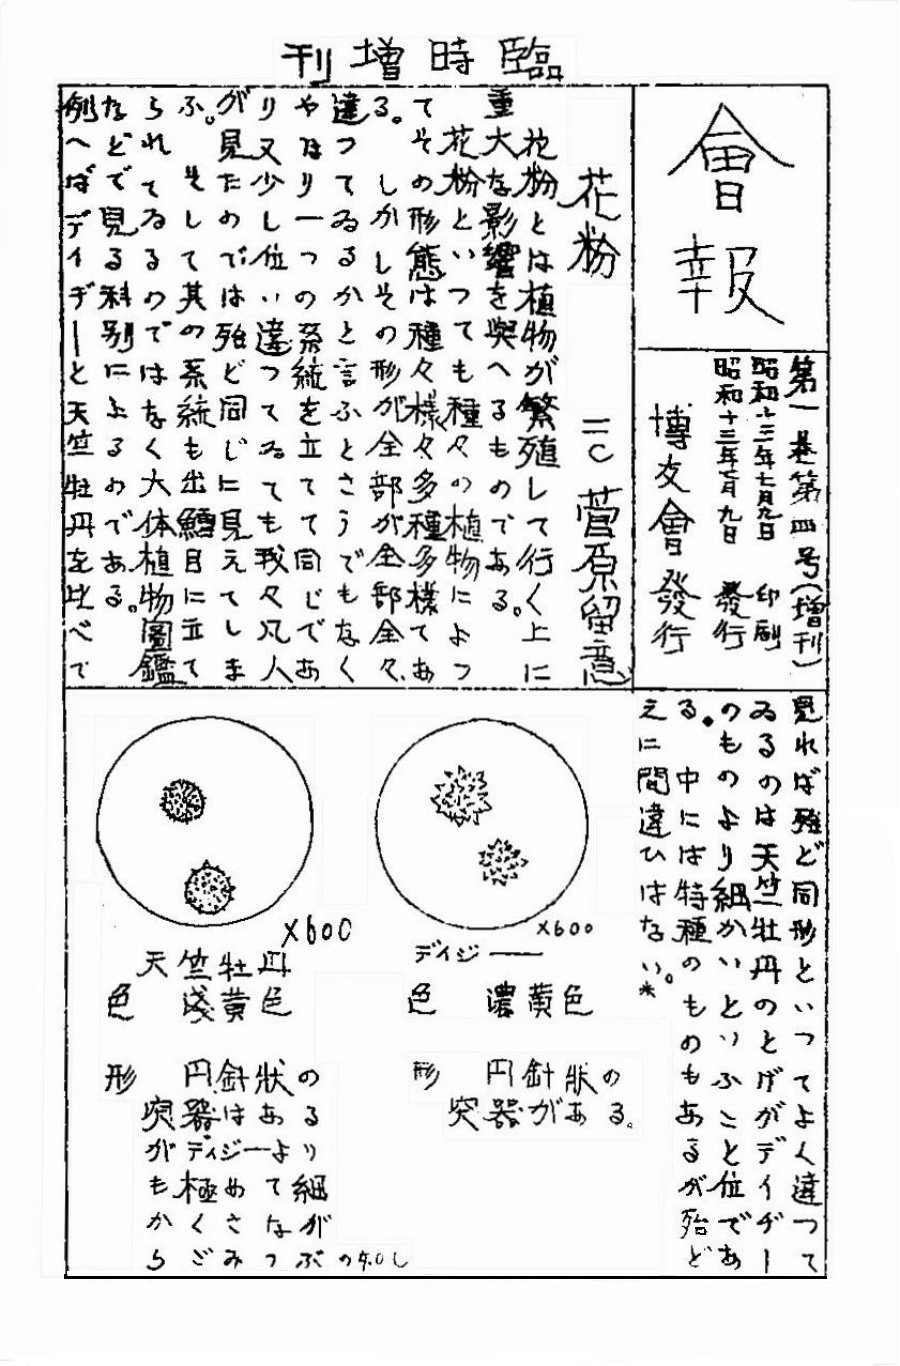 臨時増刊
會報
第一巻第四号(増刊)
昭和十三年七月九日 印刷
昭和十三年七月九日 發行
博友會 發行
花粉 二C 菅原留意
花粉とは植物が繁殖して行く上に
重大な影響を與へるものである。
花粉といつても種々の植物によつ
てその形態は種々様々多種多様てあ
る。しかしその形が全部が全部全々
違つてゐるかと言ふとさうでもなく
やはり一つの系統を立てて同じであ
り又少し位い違つてゐても我々凡人
が見たのでは殆ど同じに見えてしま
ふ。そして其の系統も出鱈目に立て
られてゐるのではなく大体植物圖鑑
などで見る科別によるのである。
例へばデイヂーと天竺牡丹を比べて
見れば殆ど同形といつてよく違つて
ゐるのは天竺牡丹のとげがデイヂー
のものより細かいといふこと位であ
る。中には特種のものもあるが殆ど
えに間違ひはない。*
×600
デイジー
色 濃黄色
形 円針狀の
突器がある。
×600
天竺牡丹
色 淺黄色
形 円針狀の
突器はある
がデイジーより
も極めて細
かくさなが
らごみつぶの如し